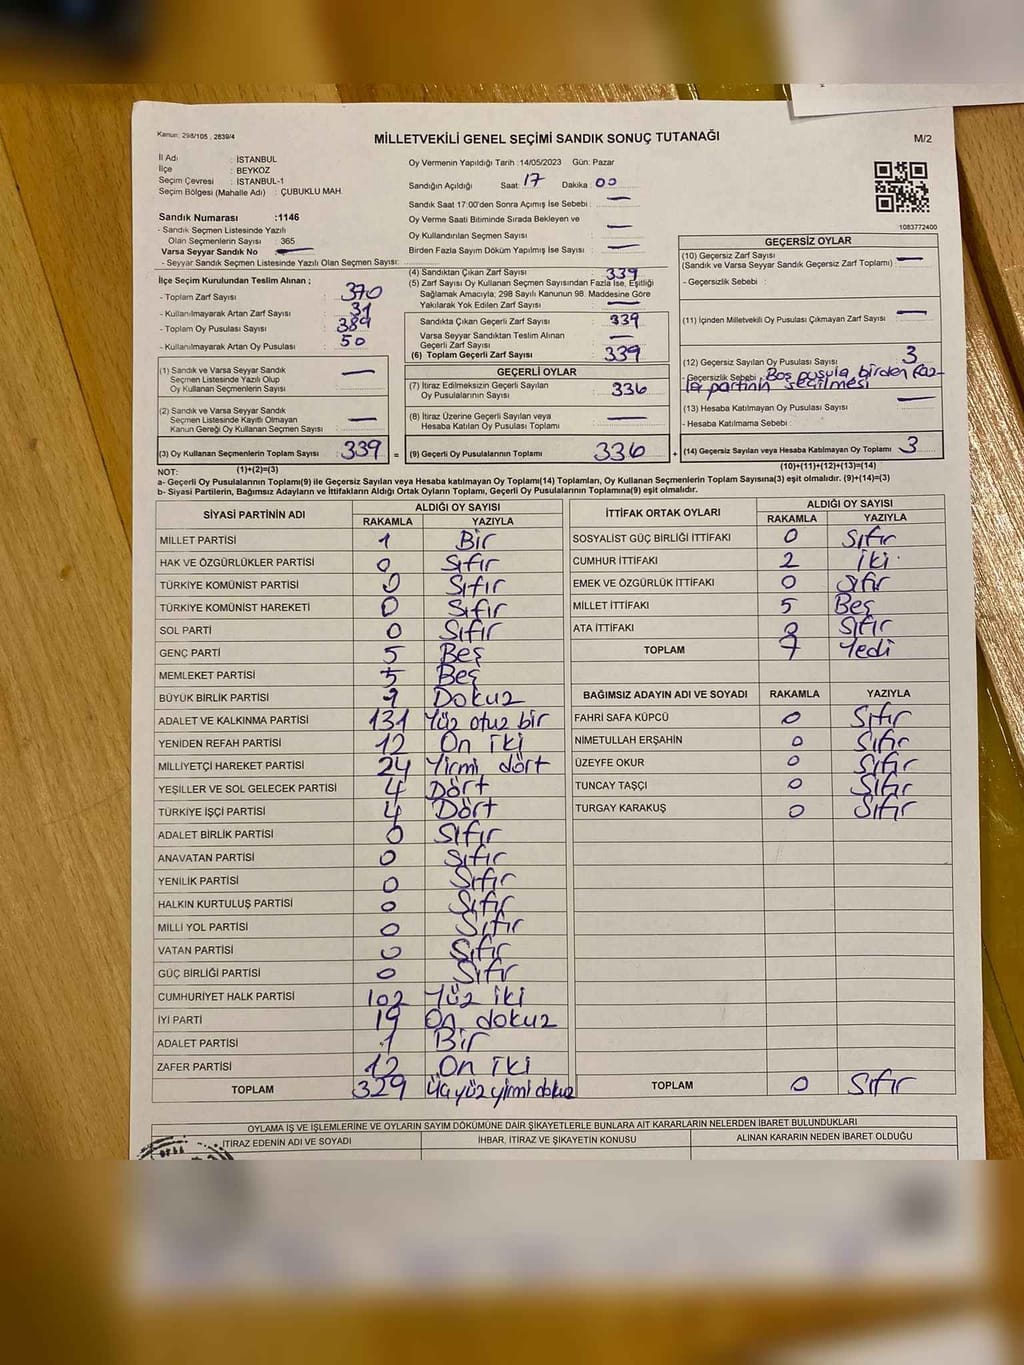 Kanun: 298/105 , 2839/4
MİLLETVEKİLİ GENEL SEÇİMİ SANDIK SONUÇ TUTANAĞI
M/2
İl Adı : İSTANBUL
İlçe : BEYKOZ
Seçim Çevresi : İSTANBUL-1
Seçim Bölgesi (Mahalle Adı) : ÇUBUKLU MAH.
Sandık Numarası :1146
- Sandık Seçmen Listesinde Yazılı
Olan Seçmenlerin Sayısı : 365
Varsa Seyyar Sandık No
- Seyyar Sandık Seçmen Listesinde Yazılı Olan Seçmen Sayısı:
Oy Vermenin Yapıldığı Tarih :14/05/2023 Gün: Pazar
Sandığın Açıldığı Saat: 17 Dakika 00
Sandık Saat 17:00'den Sonra Açılmış İse Sebebi : —
Oy Verme Saati Bitiminde Sırada Bekleyen ve
Oy Kullandırılan Seçmen Sayısı —
Birden Fazla Sayım Döküm Yapılmış İse Sayısı : —
1083772400
İlçe Seçim Kurulundan Teslim Alınan ;
- Toplam Zarf Sayısı : 370
- Kullanılmayarak Artan Zarf Sayısı : 31
- Toplam Oy Pusulası Sayısı : 389
- Kullanılmayarak Artan Oy Pusulası : 50
(1) Sandık ve Varsa Seyyar Sandık
Seçmen Listesinde Yazılı Olup
Oy Kullanan Seçmenlerin Sayısı : —
(2) Sandık ve Varsa Seyyar Sandık
Seçmen Listesinde Kayıtlı Olmayan
Kanun Gereği Oy Kullanan Seçmen Sayısı : —
(3) Oy Kullanan Seçmenlerin Toplam Sayısı : 339 =
(4) Sandıktan Çıkan Zarf Sayısı : 339
(5) Zarf Sayısı Oy Kullanan Seçmen Sayısından Fazla İse, Eşitliği
Sağlamak Amacıyla; 298 Sayılı Kanunun 98. Maddesine Göre
Yakılarak Yok Edilen Zarf Sayısı : —
Sandıkta Çıkan Geçerli Zarf Sayısı : 339
Varsa Seyyar Sandıktan Teslim Alınan
Geçerli Zarf Sayısı : —
(6) Toplam Geçerli Zarf Sayısı : 339
GEÇERLİ OYLAR
(7) İtiraz Edilmeksizin Geçerli Sayılan
Oy Pusulalarının Sayısı : 336
(8) İtiraz Üzerine Geçerli Sayılan veya
Hesaba Katılan Oy Pusulası Toplamı : —
(9) Geçerli Oy Pusulalarının Toplamı : 336 +
GEÇERSİZ OYLAR
(10) Geçersiz Zarf Sayısı
(Sandık ve Varsa Seyyar Sandık Geçersiz Zarf Toplamı) : —
- Geçersizlik Sebebi :
(11) İçinden Milletvekili Oy Pusulası Çıkmayan Zarf Sayısı : —
(12) Geçersiz Sayılan Oy Pusulası Sayısı : 3
- Geçersizlik Sebebi : Boş pusula, birden faz-
la partinin seçilmesi
(13) Hesaba Katılmayan Oy Pusulası Sayısı : —
- Hesaba Katılmama Sebebi :
(14) Geçersiz Sayılan veya Hesaba Katılmayan Oy Toplamı : 3
NOT: (1)+(2)=(3) (10)+(11)+(12)+(13)=(14)
a- Geçerli Oy Pusulalarının Toplamı(9) ile Geçersiz Sayılan veya Hesaba katılmayan Oy Toplamı(14) Toplamları, Oy Kullanan Seçmenlerin Toplam Sayısına(3) eşit olmalıdır. (9)+(14)=(3)
b- Siyasi Partilerin, Bağımsız Adayların ve İttifakların Aldığı Ortak Oyların Toplamı, Geçerli Oy Pusulalarının Toplamına(9) eşit olmalıdır.
SİYASİ PARTİNİN ADI ALDIĞI OY SAYISI
RAKAMLA YAZIYLA
MİLLET PARTİSİ 1 Bir
HAK VE ÖZGÜRLÜKLER PARTİSİ 0 Sıfır
TÜRKİYE KOMÜNİST PARTİSİ 0 Sıfır
TÜRKİYE KOMÜNİST HAREKETİ 0 Sıfır
SOL PARTİ 0 Sıfır
GENÇ PARTİ 5 Beş
MEMLEKET PARTİSİ 5 Beş
BÜYÜK BİRLİK PARTİSİ 9 Dokuz
ADALET VE KALKINMA PARTİSİ 131 Yüz otuz bir
YENİDEN REFAH PARTİSİ 12 On iki
MİLLİYETÇİ HAREKET PARTİSİ 24 Yirmi dört
YEŞİLLER VE SOL GELECEK PARTİSİ 4 Dört
TÜRKİYE İŞÇİ PARTİSİ 4 Dört
ADALET BİRLİK PARTİSİ 0 Sıfır
ANAVATAN PARTİSİ 0 Sıfır
YENİLİK PARTİSİ 0 Sıfır
HALKIN KURTULUŞ PARTİSİ 0 Sıfır
MİLLİ YOL PARTİSİ 0 Sıfır
VATAN PARTİSİ 0 Sıfır
GÜÇ BİRLİĞİ PARTİSİ 0 Sıfır
CUMHURİYET HALK PARTİSİ 102 Yüz iki
İYİ PARTİ 19 On dokuz
ADALET PARTİSİ 1 Bir
ZAFER PARTİSİ 12 On iki
TOPLAM 329 Üçyüzyirmidokuz
İTTİFAK ORTAK OYLARI ALDIĞI OY SAYISI
RAKAMLA YAZIYLA
SOSYALİST GÜÇ BİRLİĞİ İTTİFAKI 0 Sıfır
CUMHUR İTTİFAKI 2 İki
EMEK VE ÖZGÜRLÜK İTTİFAKI 0 Sıfır
MİLLET İTTİFAKI 5 Beş
ATA İTTİFAKI 0 Sıfır
TOPLAM 7 Yedi
BAĞIMSIZ ADAYIN ADI VE SOYADI RAKAMLA YAZIYLA
FAHRİ SAFA KÜPCÜ 0 Sıfır
NİMETULLAH ERŞAHİN 0 Sıfır
ÜZEYFE OKUR 0 Sıfır
TUNCAY TAŞÇI 0 Sıfır
TURGAY KARAKUŞ 0 Sıfır
TOPLAM 0 Sıfır
OYLAMA İŞ VE İŞLEMLERİNE VE OYLARIN SAYIM DÖKÜMÜNE DAİR ŞİKAYETLERLE BUNLARA AİT KARARLARIN NELERDEN İBARET BULUNDUKLARI
İTİRAZ EDENİN ADI VE SOYADI İHBAR, İTİRAZ VE ŞİKAYETİN KONUSU ALINAN KARARIN NEDEN İBARET OLDUĞU